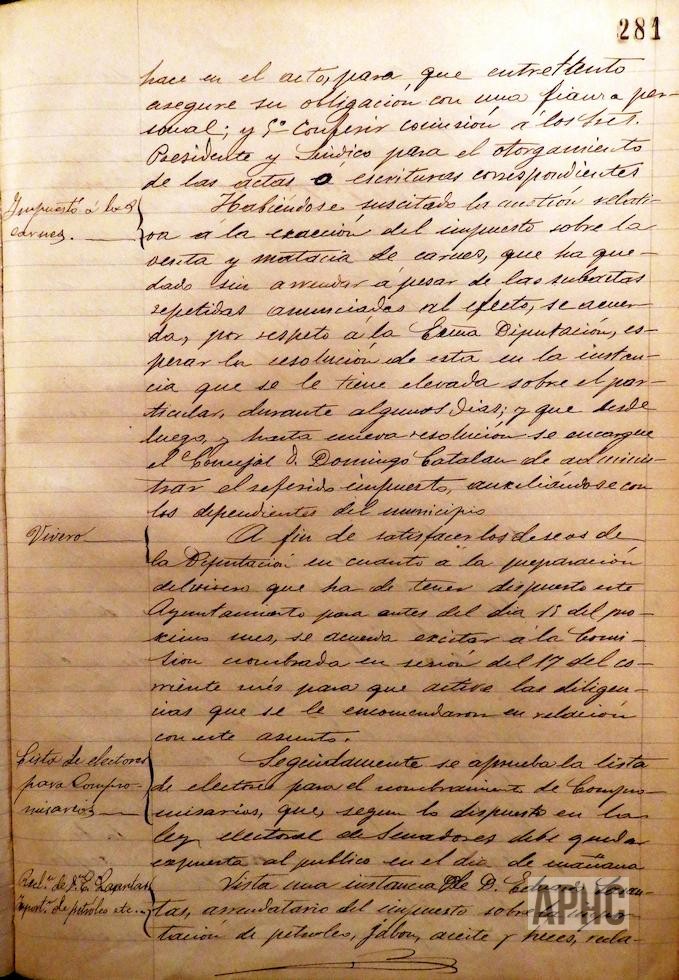 281
hace en el acto, para que entretanto
asegure su obligación con una fianza per-
sonal; y 5º Conferir comisión á los Sres.
Presidente y Síndico para el otorgamiento
de las actas ó escrituras correspondientes
Impuesto á las
carnes.
Habiéndose suscitado la cuestión relati-
va á la exacción del impuesto sobre la
venta y matacía de carnes, que ha que-
dado sin arrendar á pesar de las subastas
repetidas anunciadas al efecto, se acuer-
da, por respeto á la Exma Diputación, es-
perar la resolución de esta en la instan-
cia que se le tiene elevada sobre el par-
ticular, durante algunos dias; y que desde
luego, y hasta nueva resolución se encargue
el Concejal D. Domingo Catalan de adminis-
trar el referido impuesto, auxiliándose con
los dependientes del municipio
Vivero
A fin de satisfacer los deseos de
la Diputación en cuanto á la preparación
del vivero que ha de tener dispuesto este
Ayuntamiento para antes del dia 15 del pro-
ximo mes, se acuerda excitar á la Comi-
sion nombrada en sesión del 17 del co-
rriente mes para que active las diligen-
cias que se le encomendaron en relación
con este asunto.
Lista de electores
para Compro-
misarios
Seguidamente se aprueba la lista
de electores para el nombramiento de Compro-
misarios, que, segun lo dispuesto en la
ley electoral de Senadores debe quedar
expuesta al publico en el dia de mañana
Recl.n de D. E.
Import.n de petroleos etc.
Vista una instancia de D.
tas, arrendatario del impuesto sobre la impor-
tación de petroleos, jabon, aceite y heces, recla-
APHC